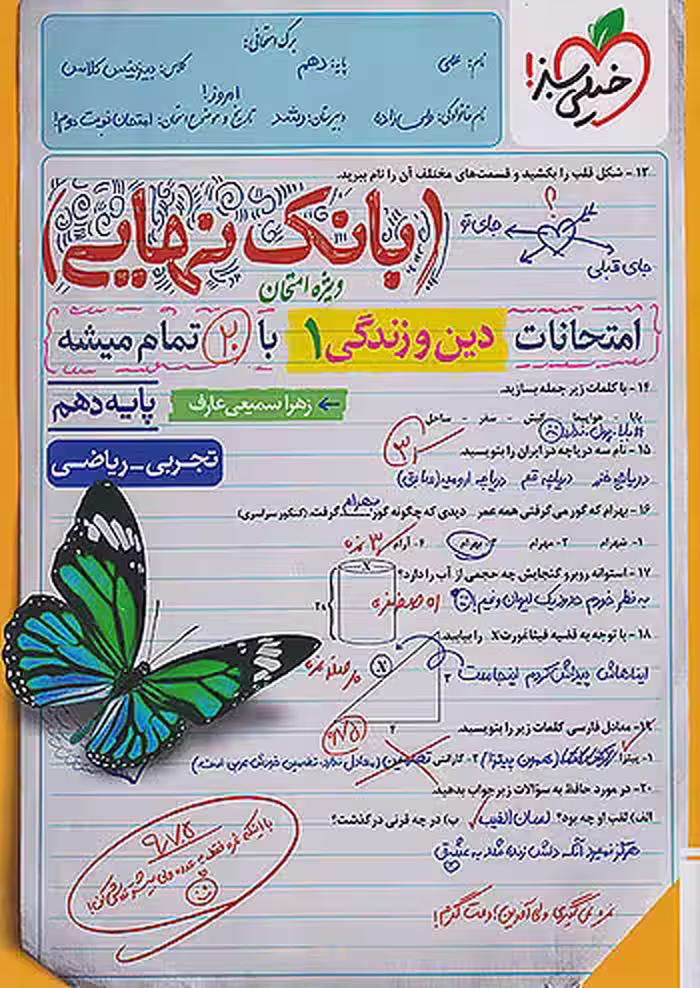 برگ امتحانی:
نام: علی
پایه: دهم
کلاس: بیزینس کلاس
نام خانوادگی:
دبیرستان: رشد
تاریخ و موضوع امتحان: امروز! امتحان نوبت دوم!
خیلی سبز!
۱۳ - شکل قلب را بکشید و قسمت‌های مختلف آن را نام ببرید.
؟
جای تو
جای قبلی
(بانک نهایی)
ویژه امتحان
امتحانات دین و زندگی ۱ با ۲۰ تمام میشه
۱۴ - با کلمات زیر جمله بسازید.
پایه دهم
زهرا سمیعی عارف
بابا - هواپیما - کیش - سفر - ساحل
بابا پول نداره
تجربی - ریاضی
۳
۱۵ - نام سه دریاچه در ایران را بنویسید.
دریاچه خزر دریاچه قم دریاچه ارومیه (سابق)
۱۶ - بهرام که گور می‌گرفتی همه عمر دیدی که چگونه گور بهرام گرفت. (کنکور سراسری)
۱- شهرام ۲- مهرام ۳- بهرام ۴- آرام
۳ نمره
۱۷ - استوانه روبرو گنجایش چه حجمی از آب را دارد؟
X
۲۰
به نظر خودم حدود یک لیوان و نیم!
۱۸ - با توجه به قضیه فیثاغورث X را بیابید.
ایناهاش پیداش کردم اینجاست
X
۳
۴
۱۹- معادل فارسی کلمات زیر را بنویسید.
۱- پیتزا: (همون پیتزا) ۲- گارانتی: تضمین (معادل نداره، تضمین خودش عربی است.)
۲۰- در مورد حافظ به سؤالات زیر جواب بدهید.
الف) لقب او چه بود؟ لسان الغیب ب) در چه قرنی درگذشت؟
هرگز نمیرد آنکه دلش زنده شد به عشق
۹/۷۵
نمره نمی‌گیری ولی آفرین! دمت گرم!